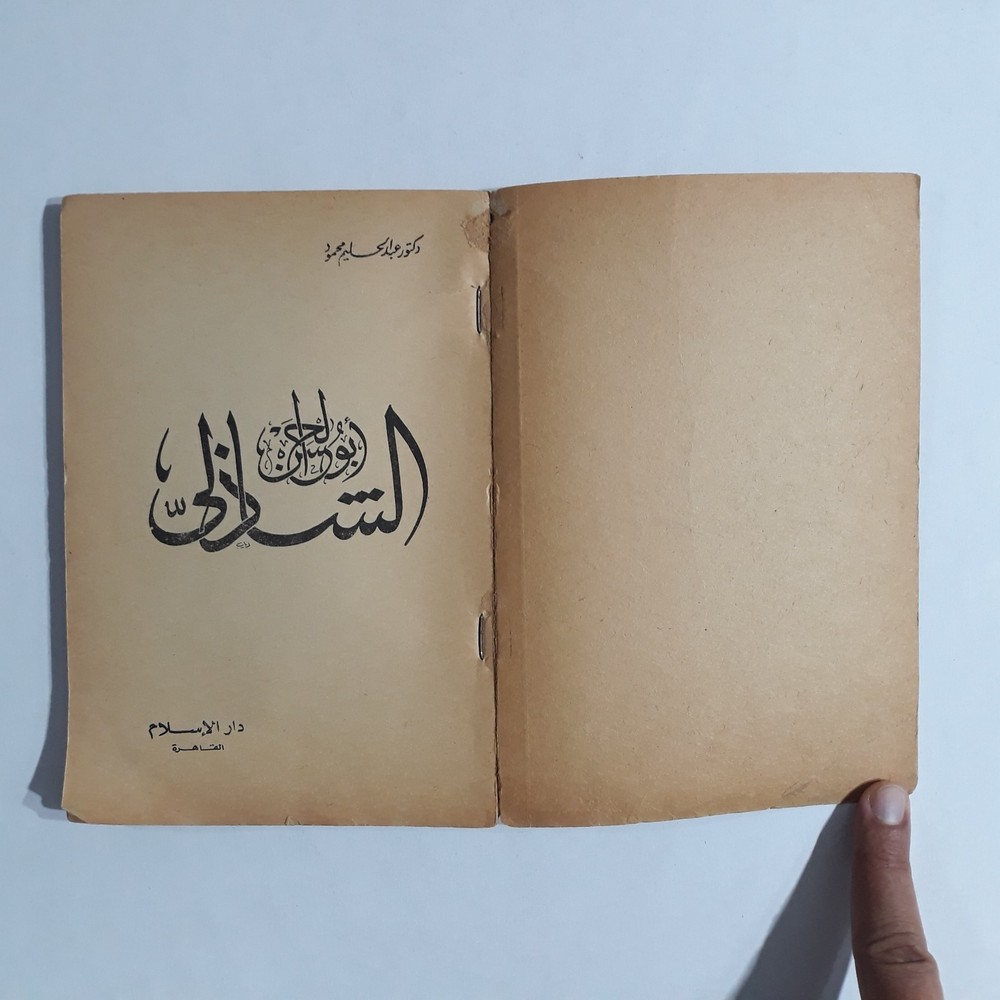 دكتور عبد الحليم محمود
أبو الحسن
الشاذلىّ
دار الإسلام
القاهرة